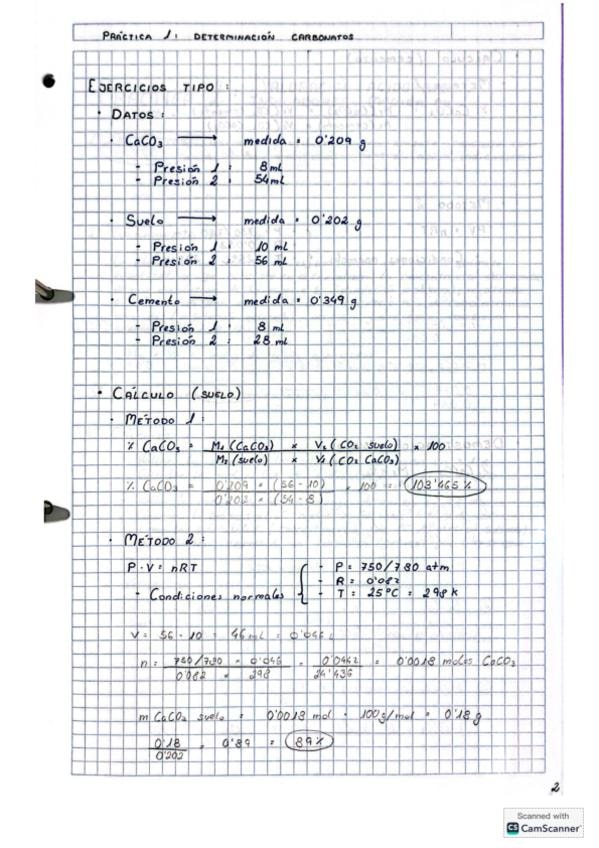 PRÁCTICA 1: DETERMINACIÓN CARBONATOS
EJERCICIOS TIPO:
· DATOS:
· CaCO₃ → medida = 0'209 g
- Presión 1: 8 ml
- Presión 2: 54 ml
· Suelo → medida = 0'202 g
- Presión 1: 10 ml
- Presión 2: 56 ml
· Cemento → medida = 0'349 g
- Presión 1: 8 ml
- Presión 2: 28 ml
· CÁLCULO (SUELO)
· MÉTODO 1:
% CaCO₃ = M₁ (CaCO₃) × V₂ (CO₂ suelo) × 100
M₂ (suelo) × V₁ (CO₂ CaCO₃)
% CaCO₃ = 0'209 × (56 - 10) × 100 = 103'465 %
0'202 × (54 - 8)
· MÉTODO 2:
P·V = nRT
- Condiciones normales
- P = 750/780 atm
- R = 0'082
- T = 25°C = 298 K
V = 56 - 10 = 46 ml = 0'046 L
n = 750/780 × 0'046 = 0'0442 = 0'0018 moles CaCO₃
0'082 × 298 24'436
m CaCO₃ suelo = 0'0018 mol · 100 g/mol = 0'18 g
0'18 = 0'89 = 89 %
0'202
2
Scanned with
CS CamScanner